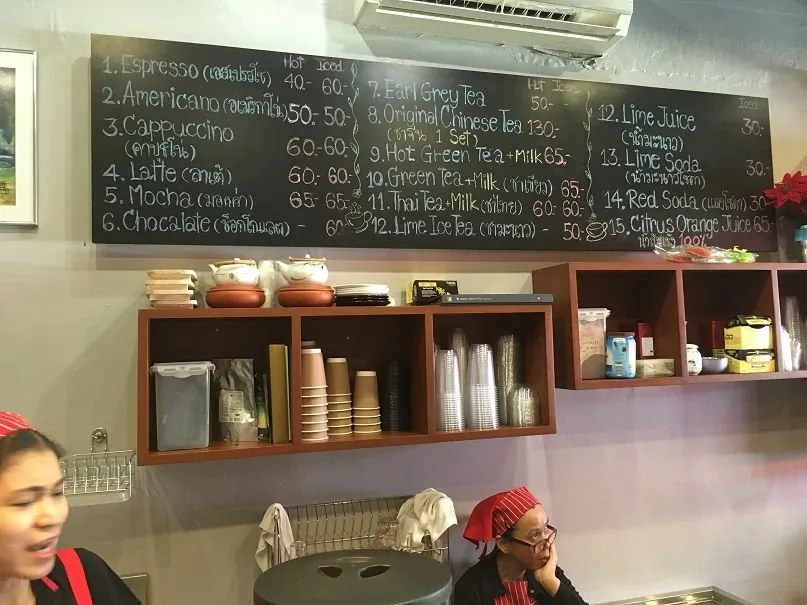 Hot Iced
1. Espresso (เอสเปรสโซ่) 40.- 60.-
2. Americano (อเมริกาโน่) 50.- 50.-
3. Cappuccino 60.- 60.-
(คาปูชิโน่)
4. Latte (ลาเต้) 60.- 60.-
5. Mocha (มอคค่า) 65.- 65.-
6. Chocalate (ช็อกโกแลต) - 60.-
Hot Iced
7. Earl Grey Tea 50.-
8. Original Chinese Tea 130.-
(ชาจีน 1 Set)
9. Hot Green Tea + Milk 65.-
10. Green Tea + Milk (ชาเขียว) 65.-
11. Thai Tea + Milk (ชาไทย) 60.- 60.-
12. Lime Ice Tea (ชามะนาว) - 50.-
Iced
12. Lime Juice 30.-
(น้ำมะนาว)
13. Lime Soda 30.-
(น้ำมะนาวโซดา)
14. Red Soda (แดงโซดา) 30.-
15. Citrus Orange Juice 65.-
น้ำส้ม 100%